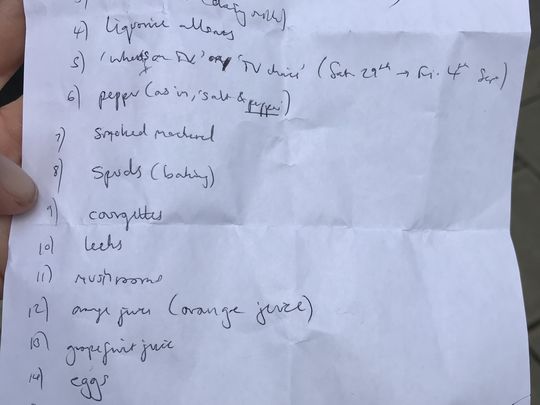 3) (dairy milk)
4) Liquorice allsorts
5) 'What's on TV' or 'TV choice' (Sat 29th → Fri. 4th Sep)
6) pepper (as in, 'salt & pepper')
7) smoked mackerel
8) spuds (baking)
9) courgettes
10) leeks
11) mushrooms
12) orange juice (orange juice)
13) grapefruit juice
14) eggs